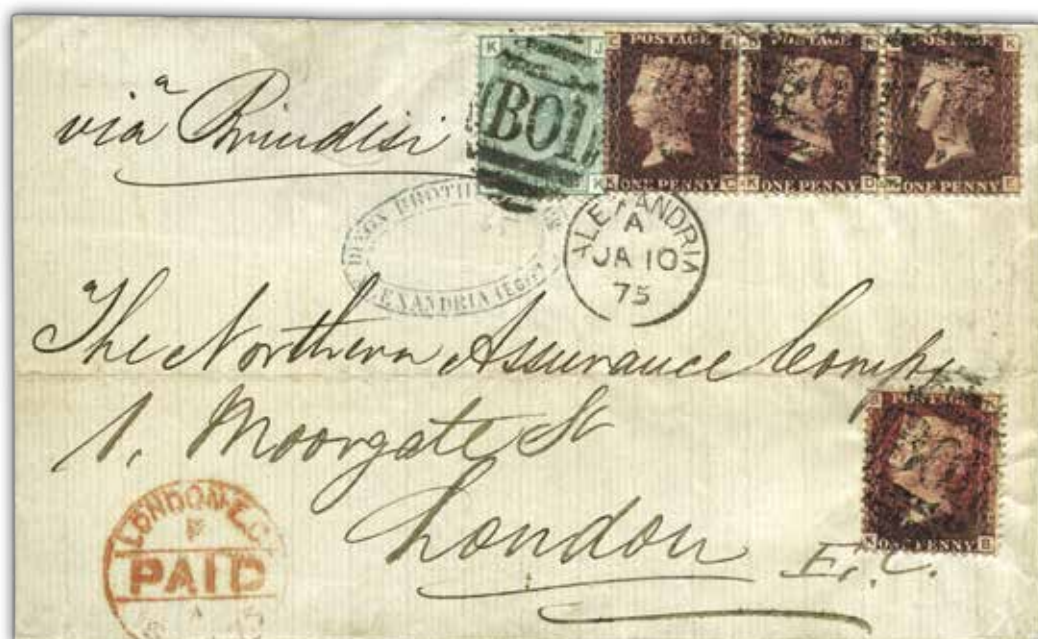 via Brindisi
K J
B01
POSTAGE
K C
ONE PENNY
POSTAGE
K D
ONE PENNY
POSTAGE K
E
ONE PENNY
DIXON BROTHERS
ALEXANDRIA (EGYPT)
ALEXANDRIA
A
JA 10
75
The Northern Assurance Compy
1, Moorgate St
London E.C.
POSTAGE
ONE PENNY B
LONDON E.C.
PAID